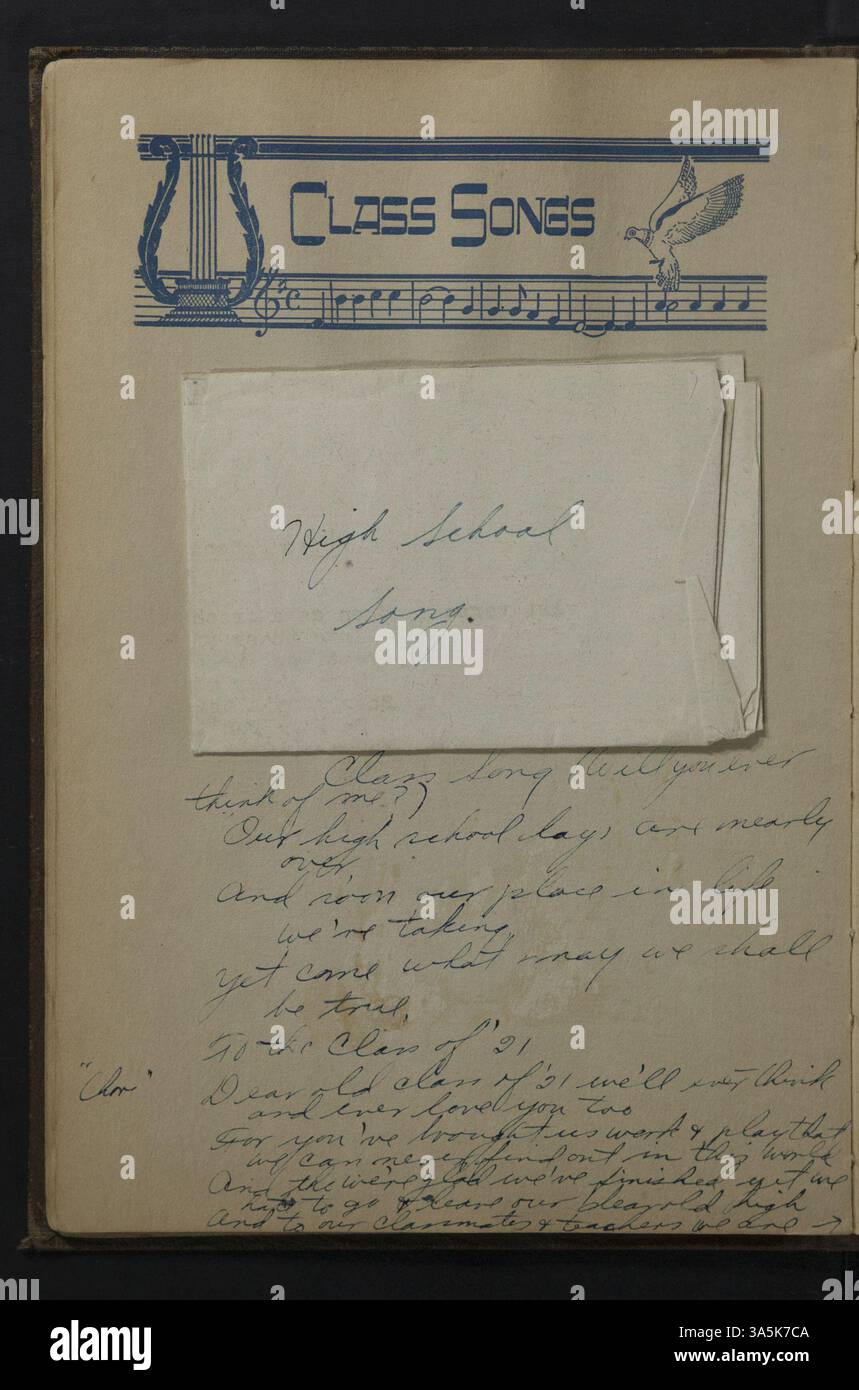 CLASS SONGS
High School
Song.
Class Song Will you ever
think of me?)
Our high school days are nearly
over
And soon our place in life
we're taking,
Yet come what may we shall
be true,
To the Class of '21
"Chor"
Dear old class of '21 we'll ever think
and ever love you too
For you've brought us work & play that
we can never find out in this world
And tho we're glad we've finished yet we
hate to go & leave our dear old high
And to our classmates & teachers we are →
alamy
Image ID: 3A5K7CA
www.alamy.com